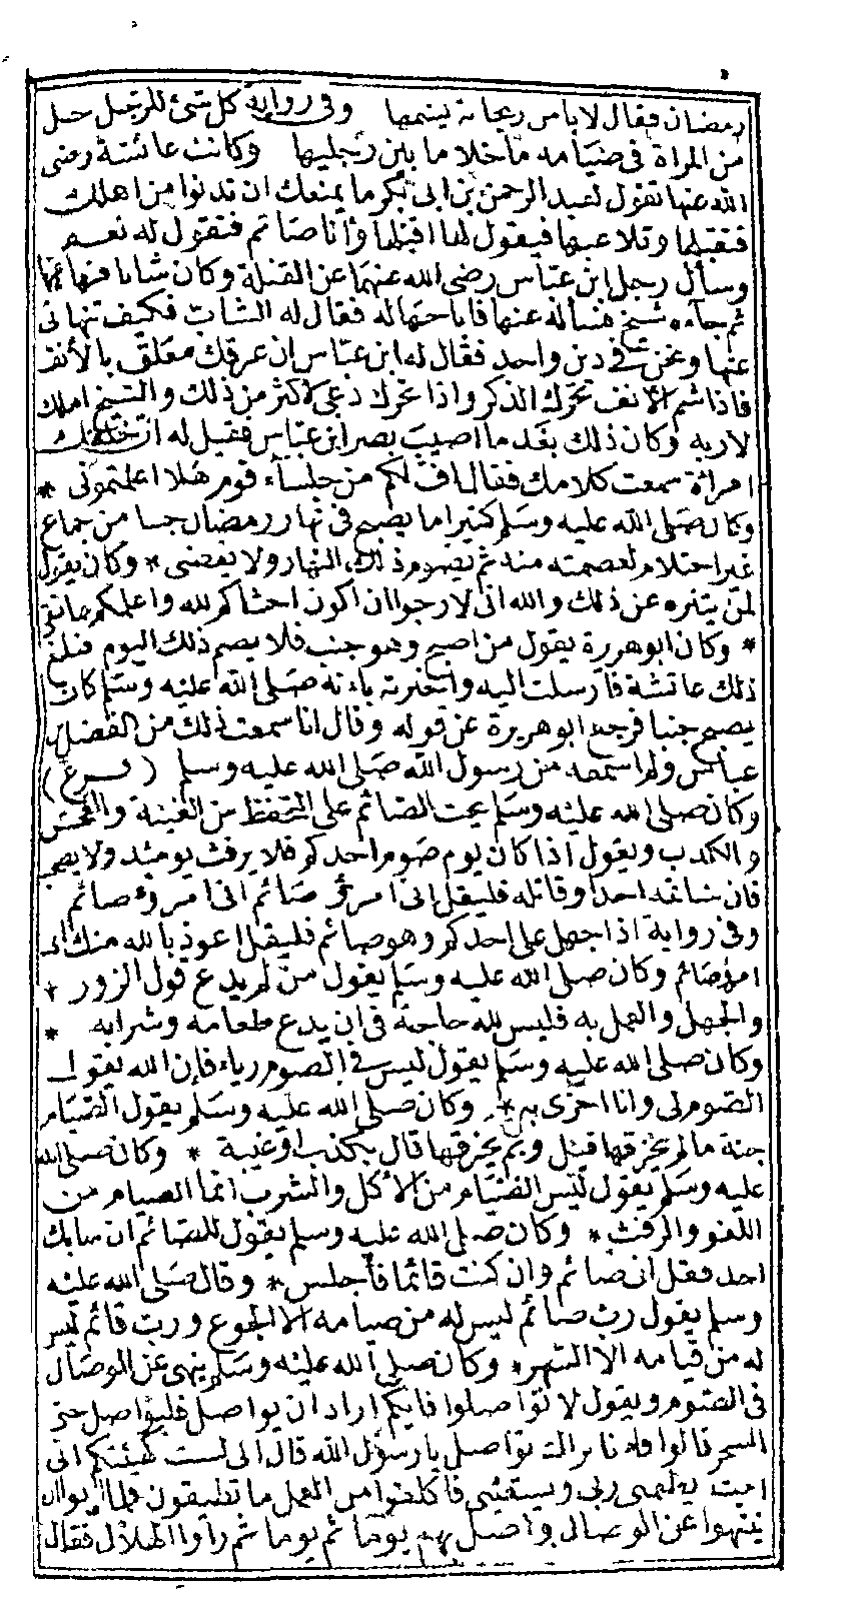 رمضان فقال لا باس ريحانة يشمها وفى رواية كل شئ للرجل حل
من المراة فى صيامه ما خلا ما بين رجليها وكانت عائشة رضى
الله عنها تقول لعبد الرحمن بن ابى بكر ما يمنعك ان تدنوا من اهلك
فتقبلها وتلاعبها فيقول لها اقبلها وأنا صائم فتقول له نعم
وسأل رجل ابن عباس رضى الله عنهما عن القبلة وكان شابا فنهاه عنها
ثم جآءه شيخ فسأله عنها فاباحها له فقال له الشاب فكيف تنهانى
عنها ونحن فى دين واحد فقال له ابن عباس ان عرقك معلق بالأنف
فاذا شم الأنف تحرك الذكر واذا تحرك دعى لاكثر من ذلك والشيخ املك
لاربه وكان ذلك بعد ما اصيب بصر ابن عباس فقيل له ان خلفك
امرأة سمعت كلامك فقال اف لكم من جلسآء قوم هلا اعلمتمونى *
وكان صلى الله عليه وسلم كثيرا ما يصبح فى نهار رمضان جنبا من جماع
غير احتلام لعصمته منه ثم يصوم ذلك النهار ولا يقضى * وكان يقول
لمن يتنزه عن ذلك والله انى لارجوا ان اكون اخشاكم لله واعلمكم بما اتقى
* وكان ابو هريرة يقول من اصبح وهو جنب فلا يصم ذلك اليوم فبلغ
ذلك عائشة فأرسلت اليه واخبرته بانه صلى الله عليه وسلم كان
يصبح جنبا فرجع ابو هريرة عن قوله وقال انا سمعت ذلك من الفضل بن
عباس ولم اسمعه من رسول الله صلى الله عليه وسلم (فرع)
وكان صلى الله عليه وسلم يحث الصائم على التحفظ من الغيبة والفحش
والكذب ويقول اذا كان يوم صوم احدكم فلا يرفث يومئذ ولا يصخب
فان شاتمه احد او قاتله فليقل انى امرؤ صائم انى امرؤ صائم
وفى رواية اذا جهل على احدكم وهو صائم فليقل اعوذ بالله منك انى
امرؤ صائم وكان صلى الله عليه وسلم يقول من لم يدع قول الزور *
والجهل والعمل به فليس لله حاجة فى ان يدع طعامه وشرابه *
وكان صلى الله عليه وسلم يقول ليس فى الصوم رياء فإن الله يقول
الصوم لى وانا اجزى به * وكان صلى الله عليه وسلم يقول الصيام
جنة ما لم يخرقها قيل وبم يخرقها قال بكذب او غيبة * وكان صلى الله
عليه وسلم يقول ليس الصيام من الأكل والشرب انما الصيام من
اللغو والرفث * وكان صلى الله عليه وسلم يقول للصائم ان سابك
احد فقل انى صائم وان كنت قائما فأجلس * وقال صلى الله عليه
وسلم يقول رب صائم ليس له من صيامه الا الجوع ورب قائم ليس
له من قيامه الا السهر * وكان صلى الله عليه وسلم ينهى عن الوصال
فى الصوم ويقول لا تواصلوا فايكم اراد ان يواصل فليواصل حتى
السحر قالوا فانا نراك تواصل يا رسول الله قال انى لست كهيئتكم انى
ابيت يطعمنى ربى ويسقينى فاكلفوا من العمل ما تطيقون فلما ابوا ان
ينتهوا عن الوصال واصل بهم يوما ثم يوما ثم راوا الهلال فقال